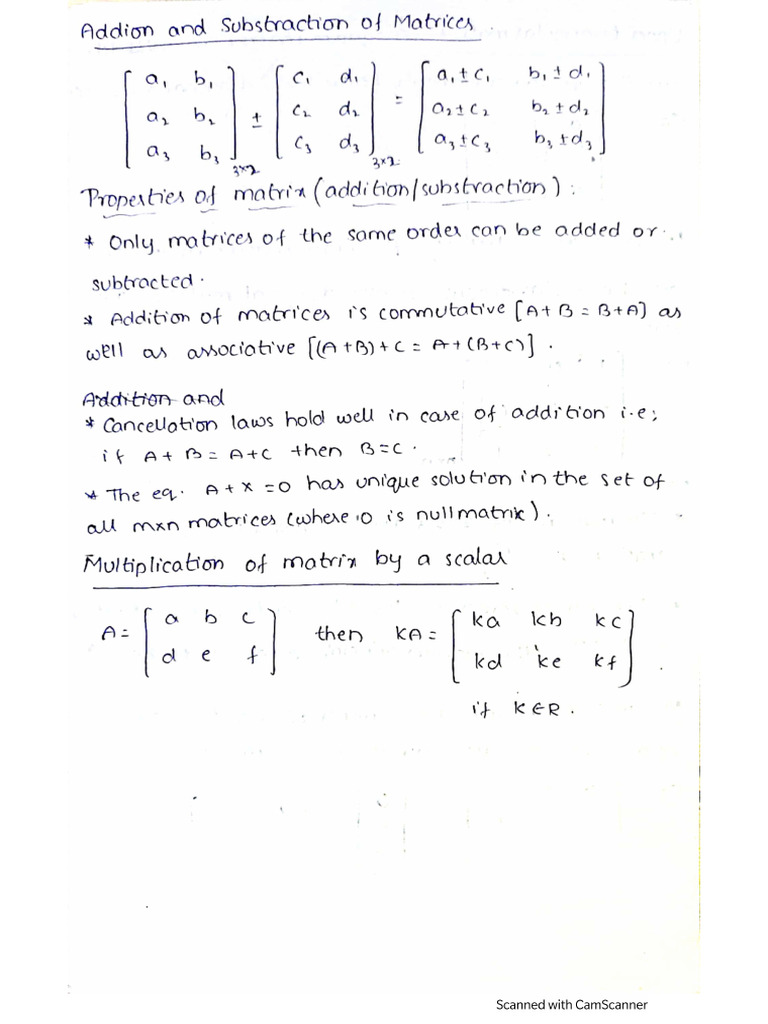 Addion and Substraction of Matrices.
[a₁ b₁] [c₁ d₁] [a₁±c₁ b₁±d₁]
[a₂ b₂] ± [c₂ d₂] = [a₂±c₂ b₂±d₂]
[a₃ b₃]3×2 [c₃ d₃]3×2 [a₃±c₃ b₃±d₃]
Properties of matrix (addition/substraction):
* Only matrices of the same order can be added or
subtracted.
* Addition of matrices is commutative [A+B = B+A] as
well as associative [(A+B)+C = A+(B+C)].
Addition and
* Cancellation laws hold well in case of addition i.e;
if A+B = A+C then B=C.
* The eq. A+X=0 has unique solution in the set of
all mxn matrices (where 0 is null matrix).
Multiplication of matrix by a scalar
A = [a b c] then KA = [ka kb kc]
[d e f] [kd ke kf].
if K∈R.
Scanned with CamScanner